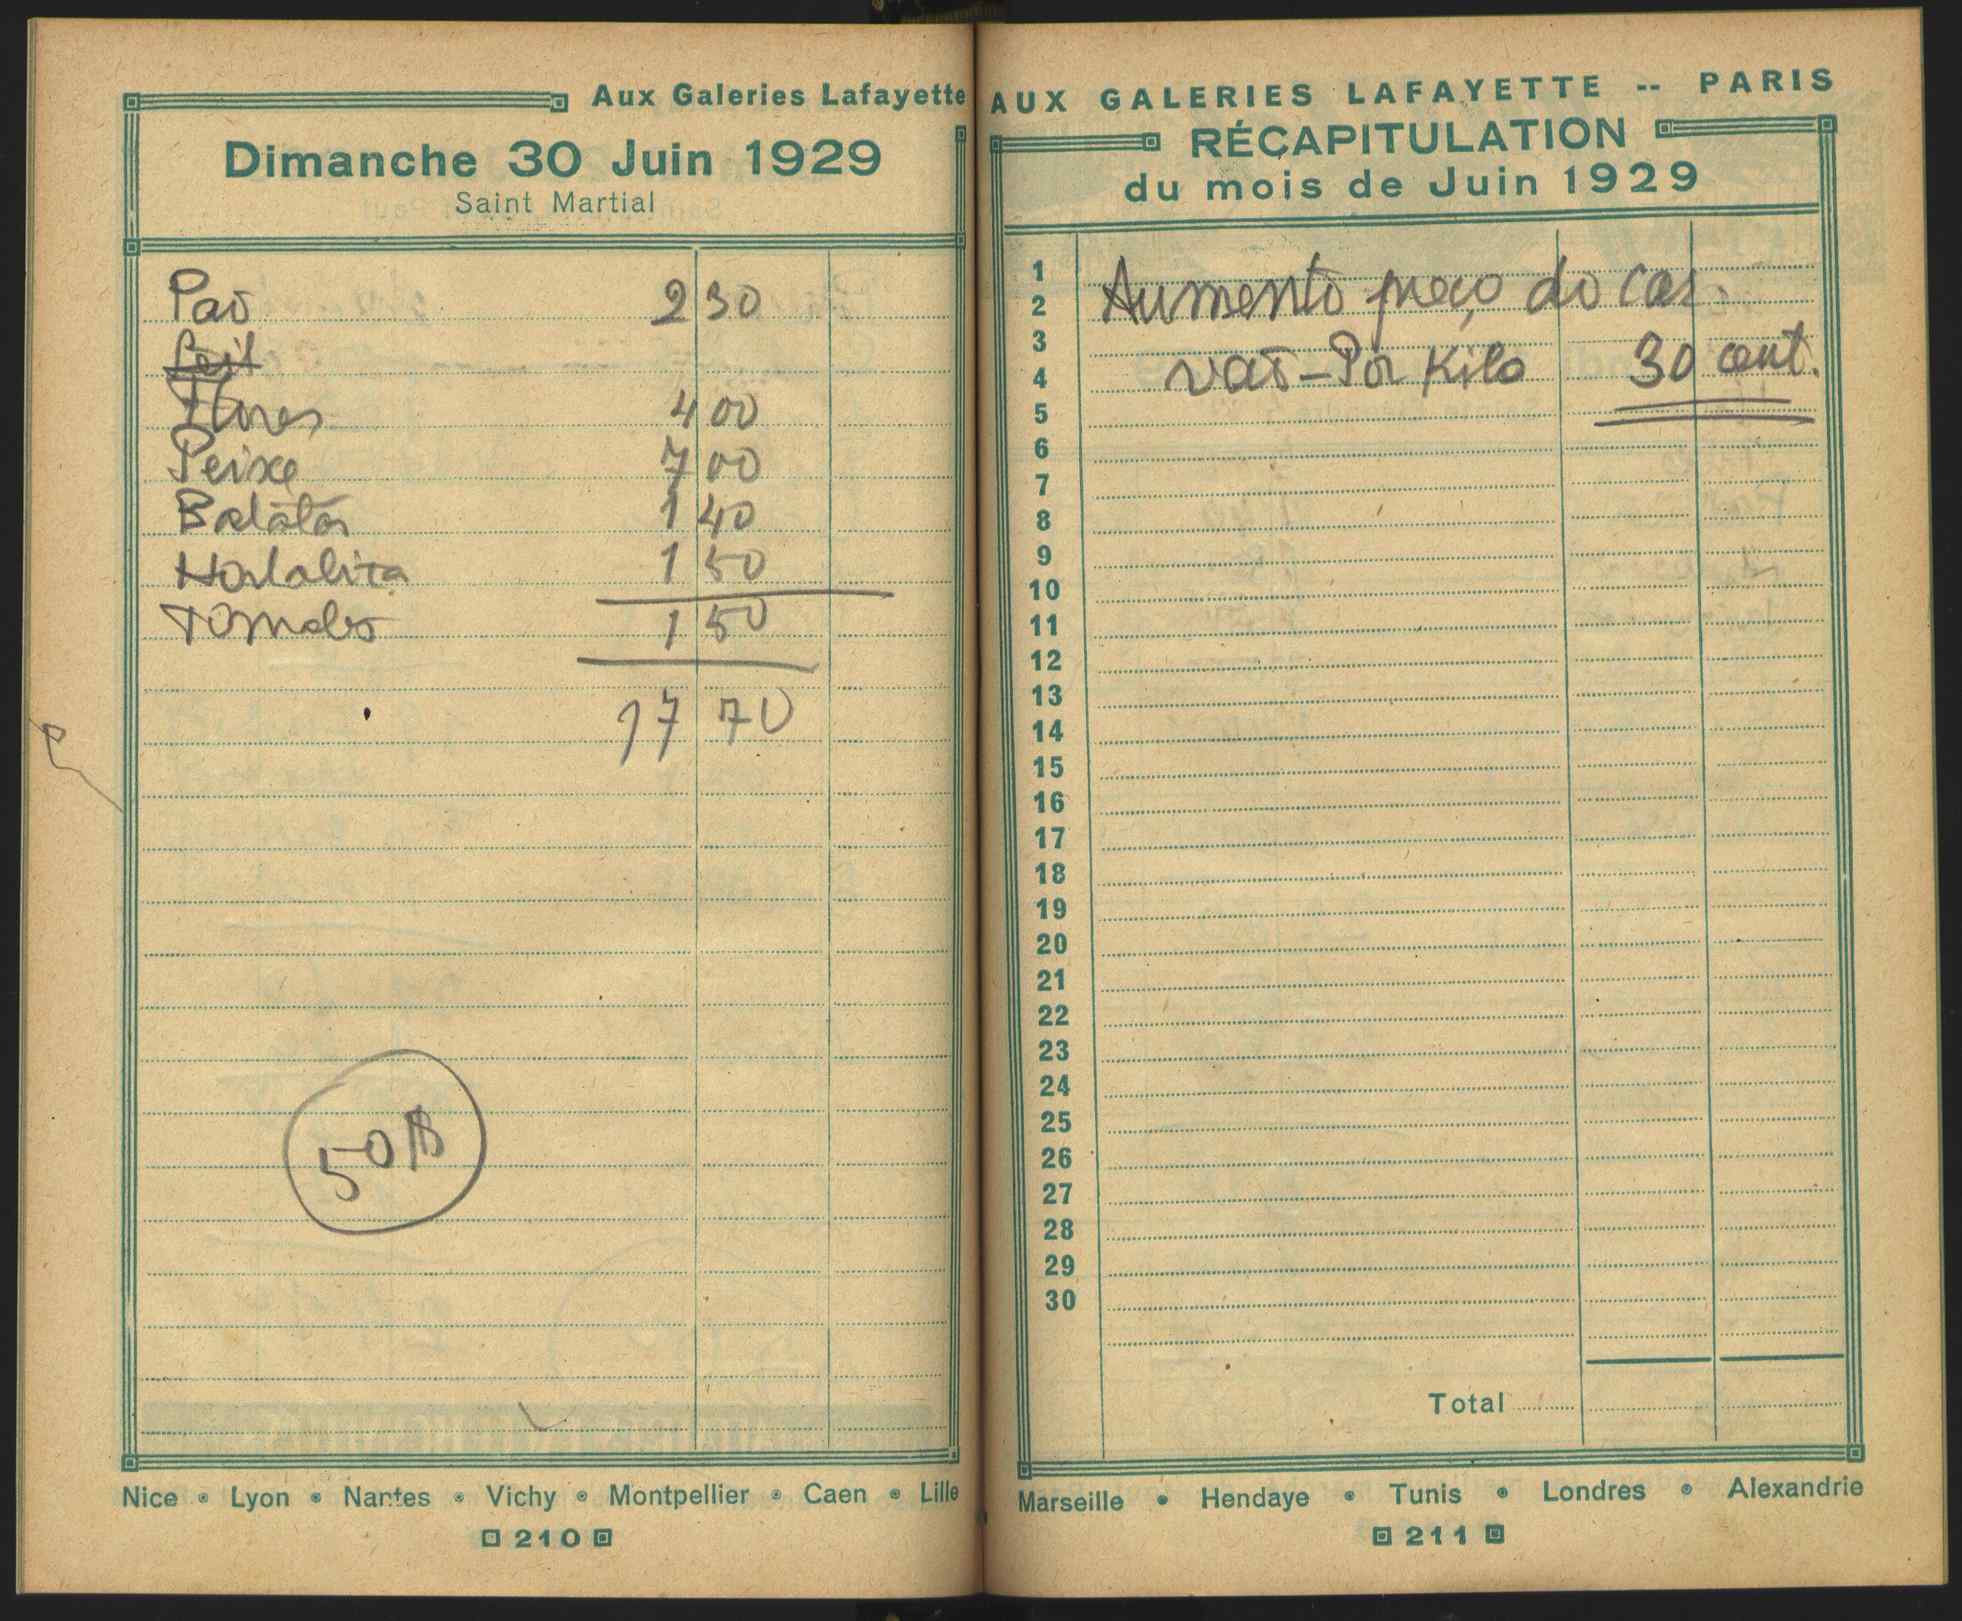 Aux Galeries Lafayette
Dimanche 30 Juin 1929
Saint Martial
Paõ 2 30
Leit
Flores 4 00
Peixe 7 00
Batatas 1 40
Hortaliça 1 50
Tomates 1 50
17 70
50$
Nice • Lyon • Nantes • Vichy • Montpellier • Caen • Lille
210
AUX GALERIES LAFAYETTE -- PARIS
RÉCAPITULATION
du mois de Juin 1929
1
Aumento preço do car.
2
3
vaõ – Por Kilo 30 cent.
4
5
6
7
8
9
10
11
12
13
14
15
16
17
18
19
20
21
22
23
24
25
26
27
28
29
30
Total
Marseille • Hendaye • Tunis • Londres • Alexandrie
211